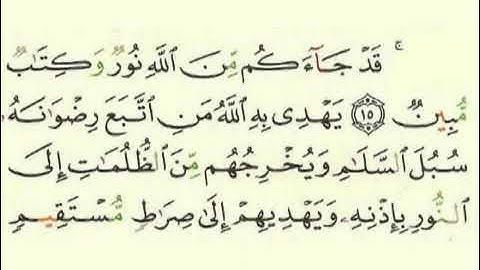 ۚ قَدۡ جَآءَكُم مِّنَ ٱللَّهِ نُورٌ وَكِتَٰبٌ
مُّبِينٌ ١٥ يَهۡدِي بِهِ ٱللَّهُ مَنِ ٱتَّبَعَ رِضۡوَٰنَهُۥ
سُبُلَ ٱلسَّلَٰمِ وَيُخۡرِجُهُم مِّنَ ٱلظُّلُمَٰتِ إِلَى
ٱلنُّورِ بِإِذۡنِهِۦ وَيَهۡدِيهِمۡ إِلَىٰ صِرَٰطٍ مُّسۡتَقِيمٍ